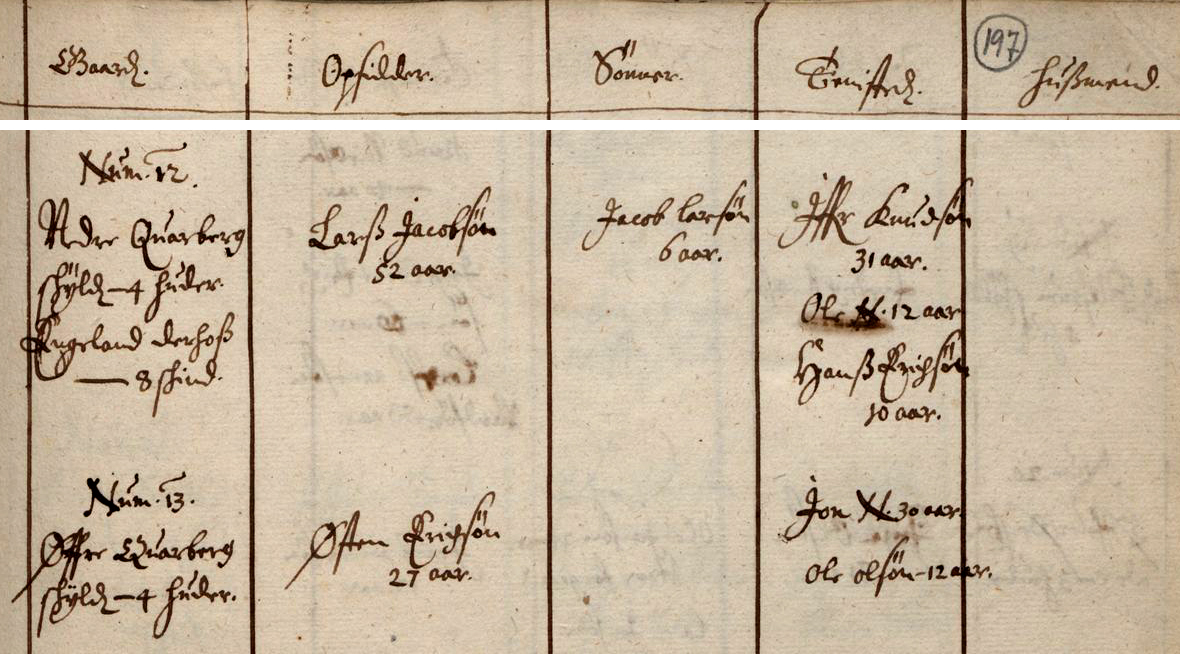 197
Gaard. Opsidder. Sönner. Tienistd. Hußmend.
Num. 12.
Nedre Quarberg
schÿld – 4 huder.
Engeland derhoß
— 8 schind.
Larß Jacobsön
52 aar.
Jacob larsön
6 aar.
Iffr Knudsön
31 aar.
Ole N. 12 aar
Hanß Erichsön
10 aar.
Num. 13.
Øffre Quarberg
schÿld – 4 huder.
Østen Erigsön
27 aar.
Jon N. 30 aar.
Ole olsön – 12 aar.